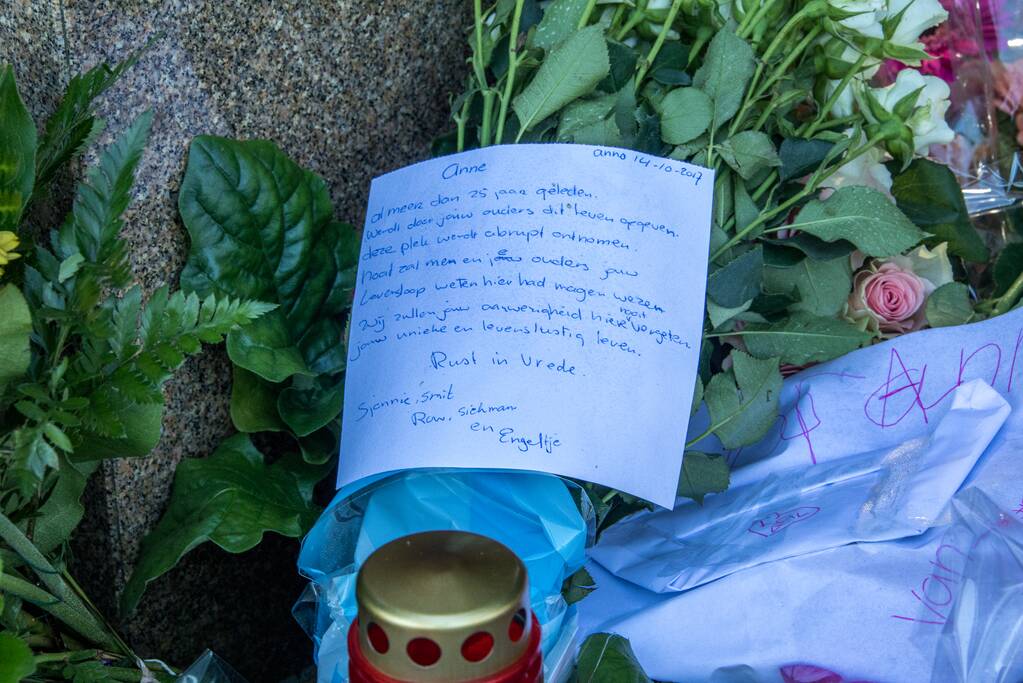 Anne
anno 14-10-2017
al meer dan 25 jaar geleden.
werdt door jouw ouders dit leven gegeven.
deze plek werdt abrupt ontnomen.
nooit zal men en jouw ouders jouw
Levensloop weten hier had mogen wezen
wij zullen jouw aanwezigheid hier nooit vergeten
jouw unieke en levenslustig leven.
Rust in Vrede.
Sjennie, Smit
Row. siekman
en
Engeltje
van